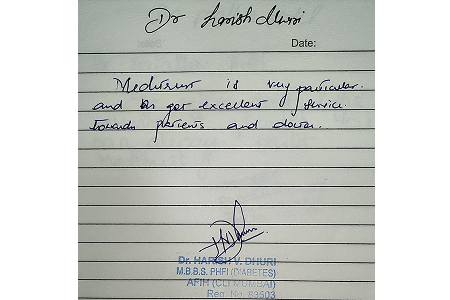 Dr Harish Dhuri
Date:
is very particular.
and has got excellent service
towards patients and
Dr. HARISH V. DHURI
M.B.B.S. PHFI (DIABETES)
AFIH (CLI MUMBAI)
Reg. No. 83503